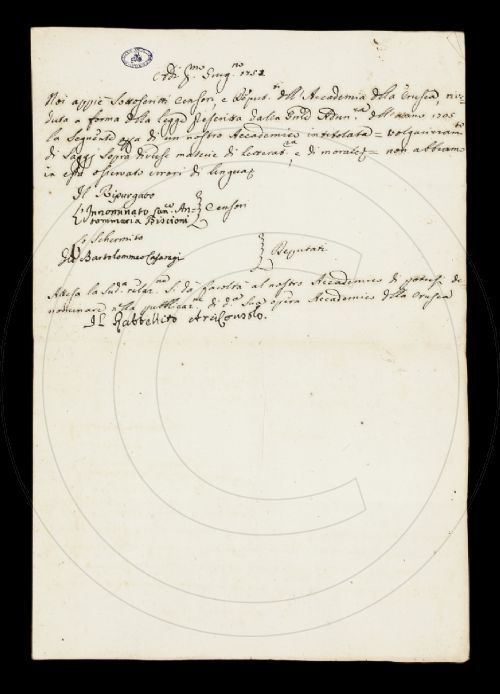 Noi appiè Sottoscritti Censori, e Deput.ti dell'Accademia della Crusca, rive-
duta a forma della legge prescritta dalla Adun.za dell'anno 1705
la Seguente opera di un nostro Accademico intitolata = volgarizzam.to
di Saggi sopra diverse materie di letterat.ra e di morale = non abbiamo
in essa osservato errori di lingua
Il Ripurgato
L'Innominato Can.co An-
tommaria Biscioni
Censori
Lo Schermito
Bartolommeo Casaregi
Deputati
Attesa la sud.a relaz.ne si dà facoltà al nostro Accademico di potersi de-
nominare nella pubblicaz.ne di d.a sua opera Accademico della Crusca
Il Rabbellito Arciconsolo.